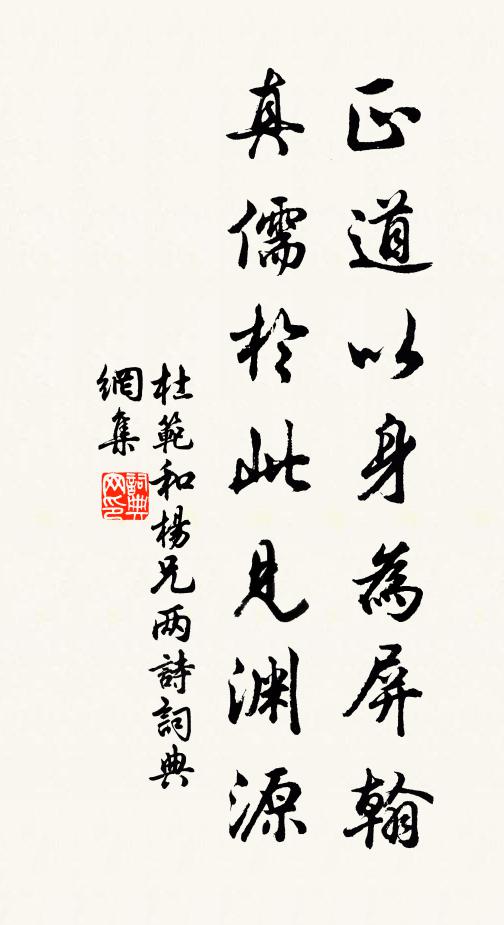 正道以身為屏翰
真儒於此見渊源
杜範和楊兄两詩詞典
網集
詞典
网印